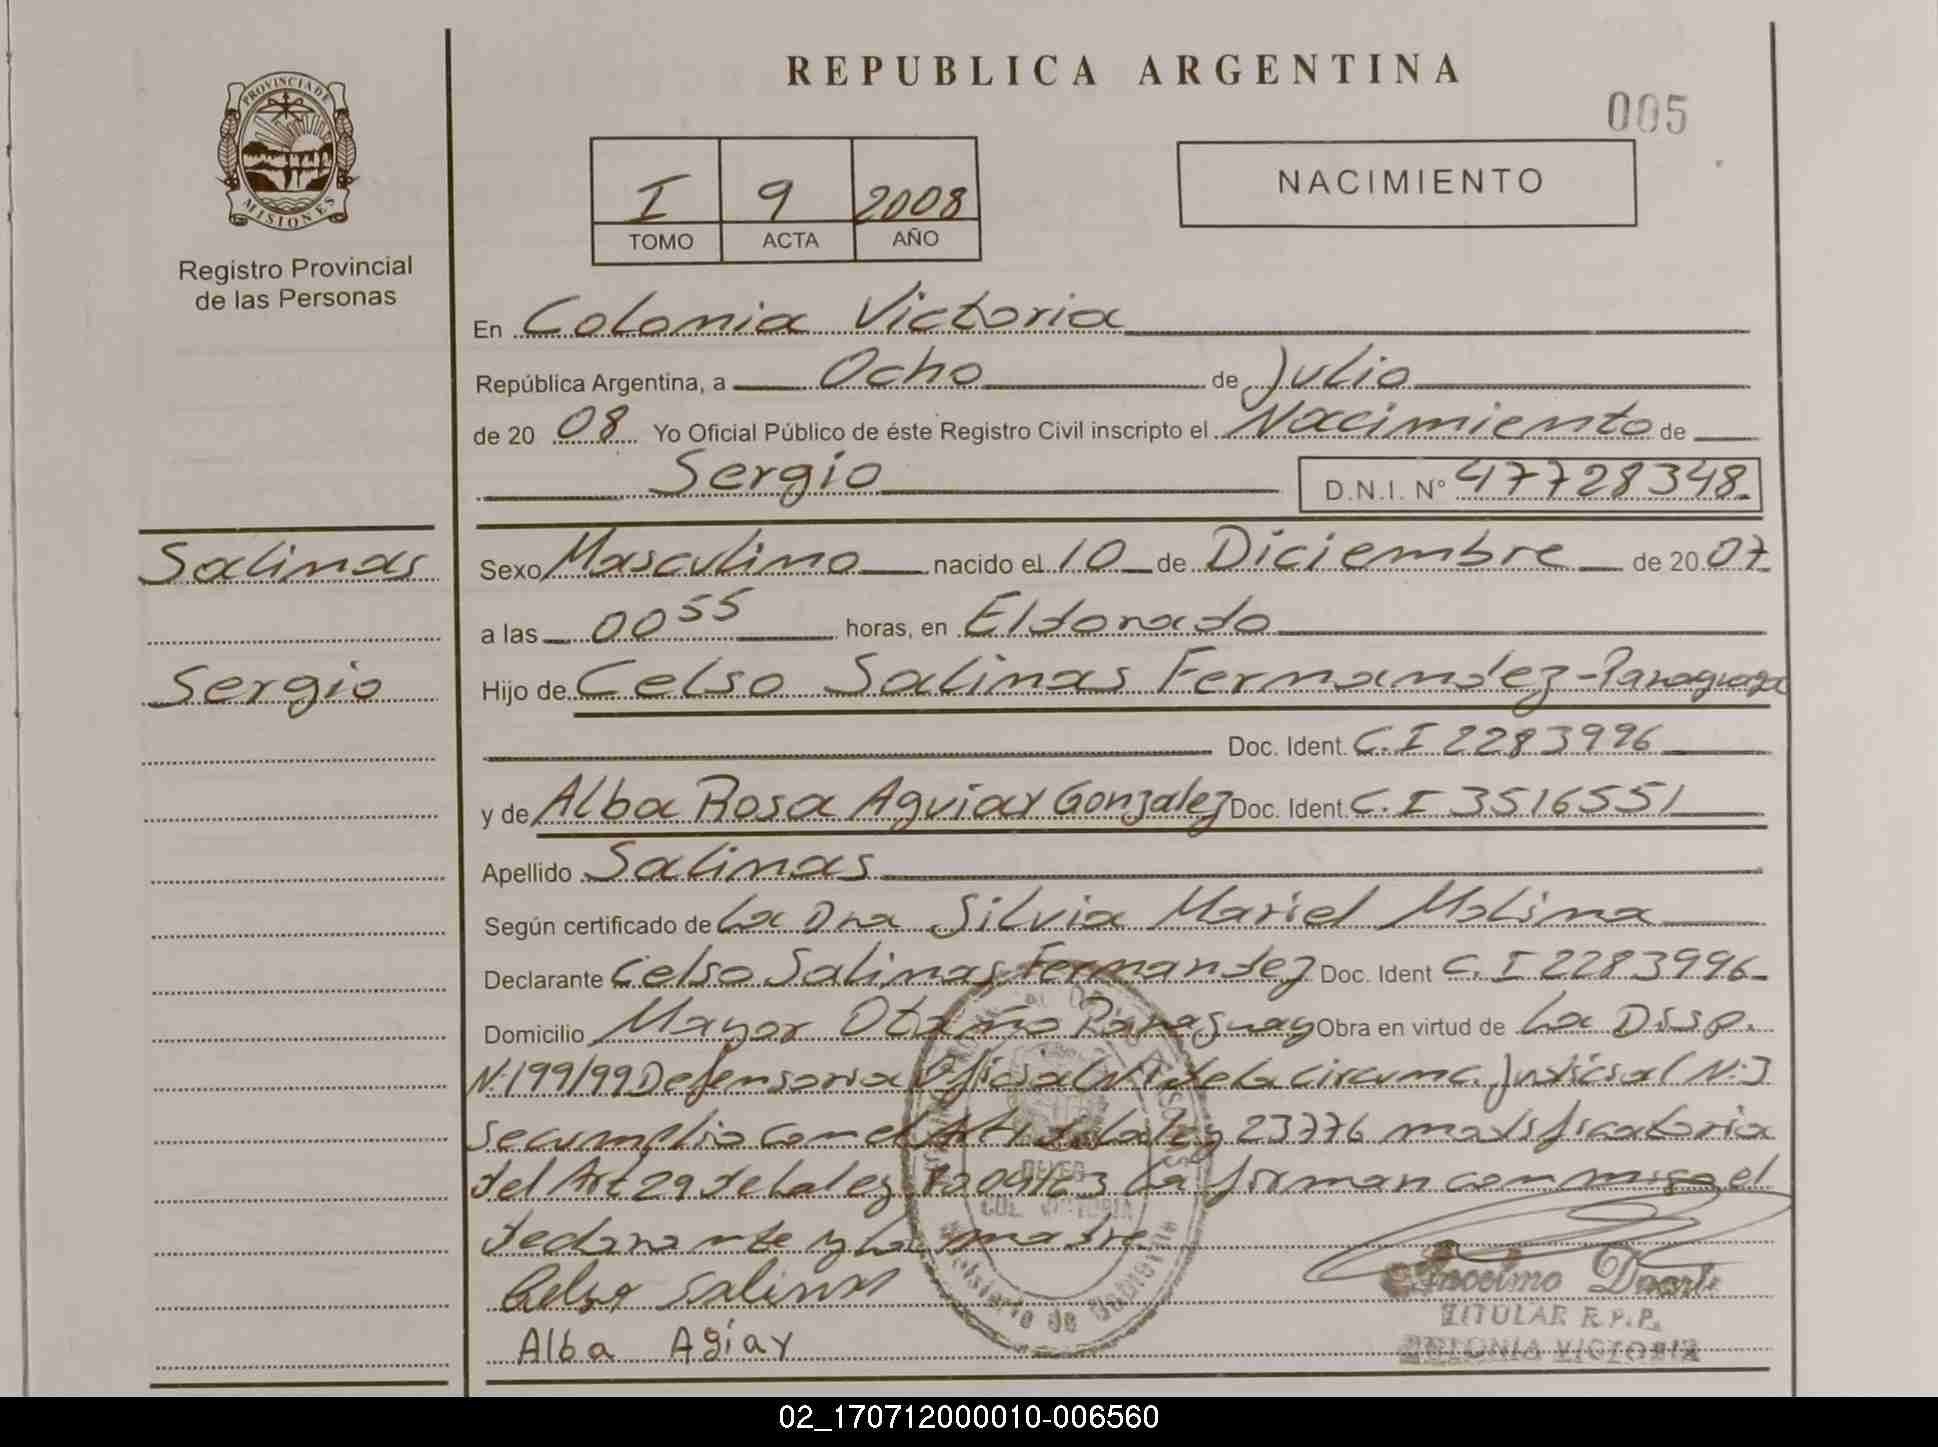 REPUBLICA ARGENTINA
005
PROVINCIA DE
MISIONES
Registro Provincial
de las Personas
I 9 2008
TOMO ACTA AÑO
NACIMIENTO
En Colonia Victoria
República Argentina, a Ocho de Julio
de 20 08 Yo Oficial Público de éste Registro Civil inscripto el Nacimiento de
Sergio D.N.I. N° 47728348
Salinas
Sergio
Sexo Masculino nacido el 10 de Diciembre de 20 07
a las 00 55 horas, en Eldorado
Hijo de Celso Salinas Fernandez - Paraguaya
Doc. Ident. C.I 2283996
y de Alba Rosa Aguiar Gonzalez Doc. Ident. C.I 3516551
Apellido Salinas
Según certificado de La Dra Silvia Mariel Molina
Declarante Celso Salinas Fernandez Doc. Ident C.I 2283996
Domicilio Mayor Otaño Paraguay Obra en virtud de La Dssp.
N.199/99 Defensoria Oficial de la circunc. Judicial
Se cumplio con el Art 1 de la ley 23776 modificatoria
del Art 29 de la ley La firman conmigo el
declarante y la madre
Celso Salinas
Alba Agiar
COL. VICTORIA
Ministerio de Gobierno
Ancelmo Duarte
TITULAR R.P.P.
COLONIA VICTORIA
02_170712000010-006560